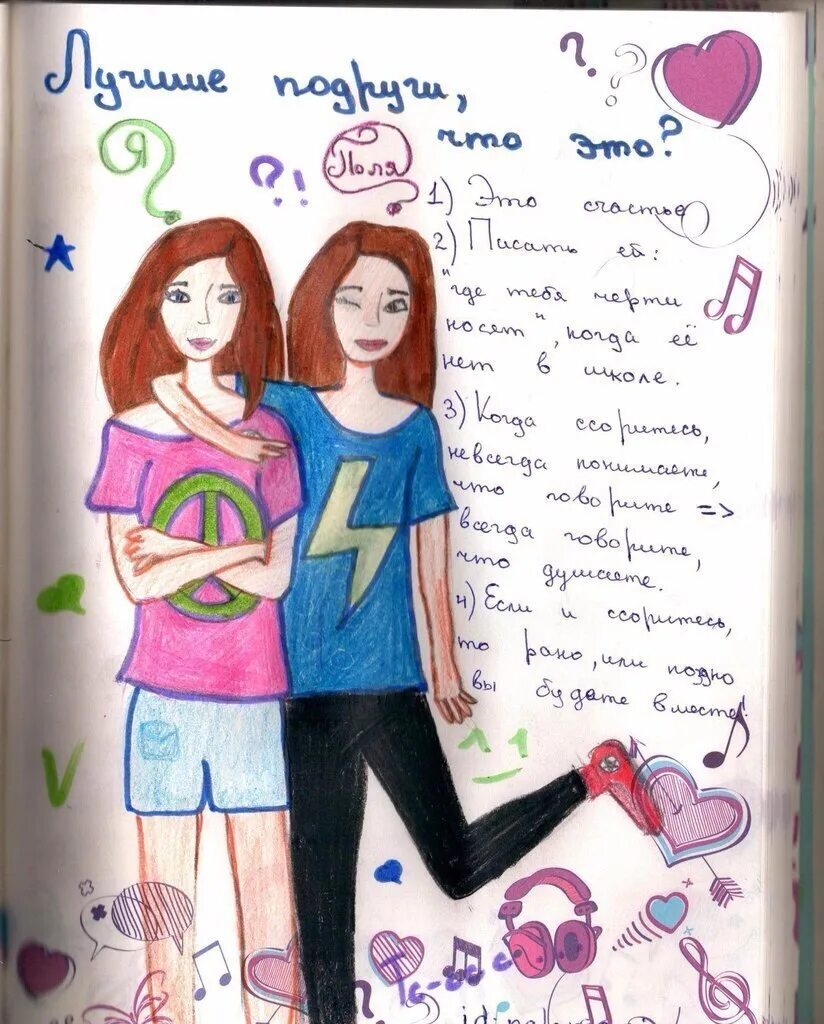 Лучшие подруги,
что это?
Я
?!
Поля
1) Это счастье
2) Писать ей:
"где тебя черти
носят", когда её
нет в школе.
3) Когда ссоритесь,
невсегда понимаете,
что говорите =>
всегда говорите,
что думаете.
4) Если и ссоритесь,
то рано, или поздно
вы будете вместе!